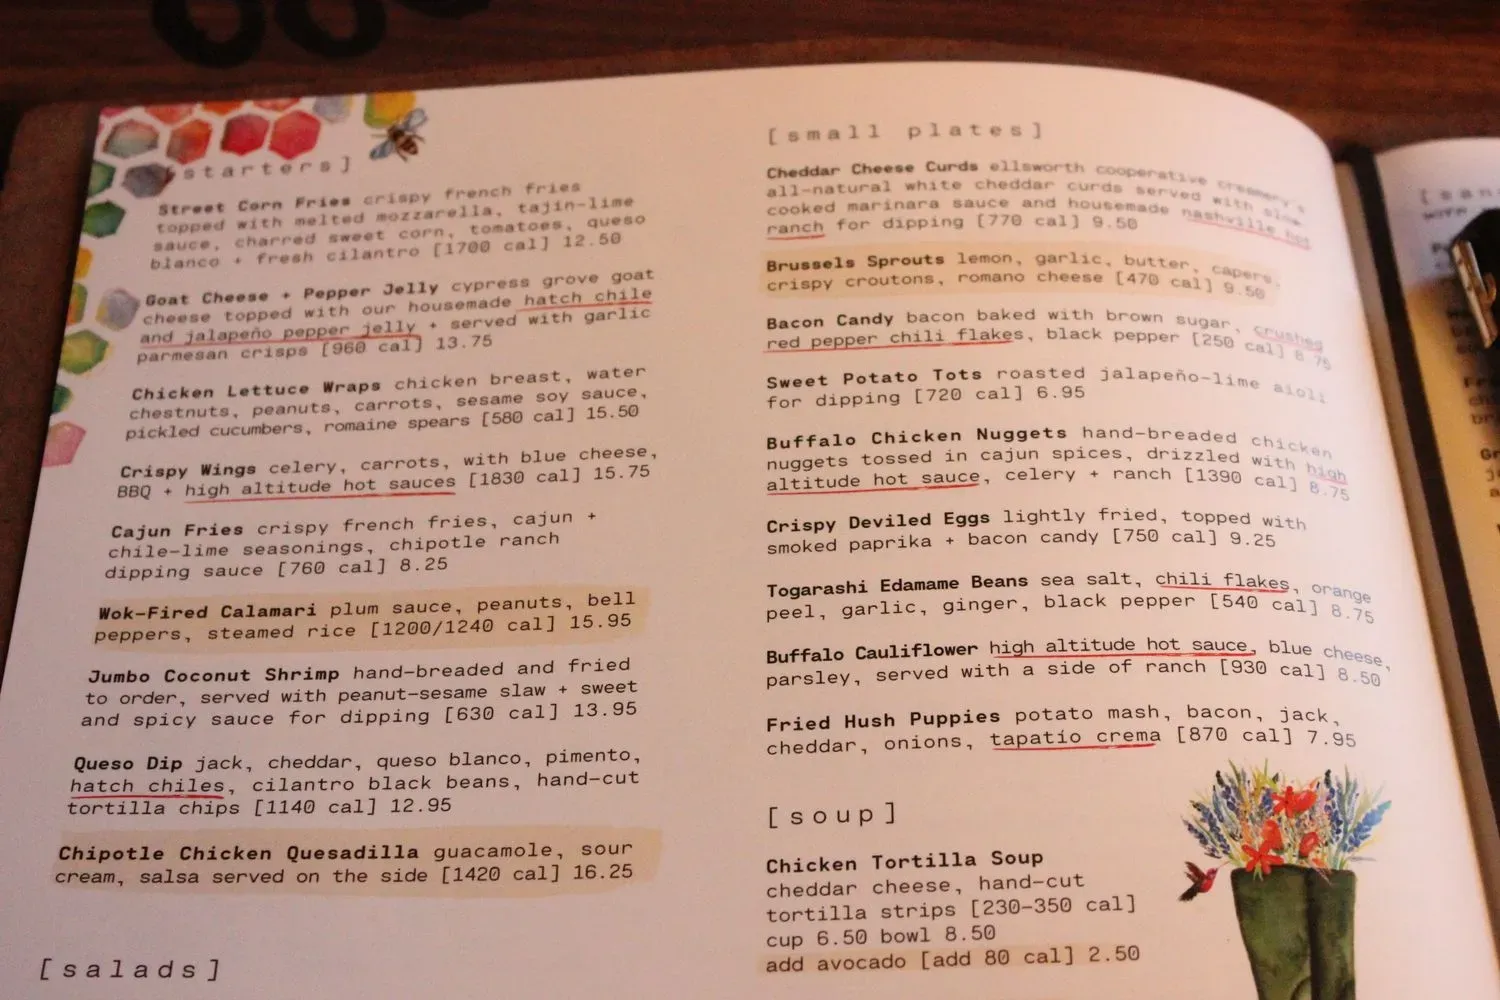 [starters]
Street Corn Fries crispy french fries
topped with melted mozzarella, tajin-lime
sauce, charred sweet corn, tomatoes, queso
blanco + fresh cilantro [1700 cal] 12.50
Goat Cheese + Pepper Jelly cypress grove goat
cheese topped with our housemade hatch chile
and jalapeño pepper jelly + served with garlic
parmesan crisps [960 cal] 13.75
Chicken Lettuce Wraps chicken breast, water
chestnuts, peanuts, carrots, sesame soy sauce,
pickled cucumbers, romaine spears [580 cal] 15.50
Crispy Wings celery, carrots, with blue cheese,
BBQ + high altitude hot sauces [1830 cal] 15.75
Cajun Fries crispy french fries, cajun +
chile-lime seasonings, chipotle ranch
dipping sauce [760 cal] 8.25
Wok-Fired Calamari plum sauce, peanuts, bell
peppers, steamed rice [1200/1240 cal] 15.95
Jumbo Coconut Shrimp hand-breaded and fried
to order, served with peanut-sesame slaw + sweet
and spicy sauce for dipping [630 cal] 13.95
Queso Dip jack, cheddar, queso blanco, pimento,
hatch chiles, cilantro black beans, hand-cut
tortilla chips [1140 cal] 12.95
Chipotle Chicken Quesadilla guacamole, sour
cream, salsa served on the side [1420 cal] 16.25
[salads]
[small plates]
Cheddar Cheese Curds ellsworth cooperative creamery's
all-natural white cheddar curds served with slow-
cooked marinara sauce and housemade nashville hot
ranch for dipping [770 cal] 9.50
Brussels Sprouts lemon, garlic, butter, capers,
crispy croutons, romano cheese [470 cal] 9.50
Bacon Candy bacon baked with brown sugar, crushed
red pepper chili flakes, black pepper [250 cal] 8.75
Sweet Potato Tots roasted jalapeño-lime aioli
for dipping [720 cal] 6.95
Buffalo Chicken Nuggets hand-breaded chicken
nuggets tossed in cajun spices, drizzled with high
altitude hot sauce, celery + ranch [1390 cal] 8.75
Crispy Deviled Eggs lightly fried, topped with
smoked paprika + bacon candy [750 cal] 9.25
Togarashi Edamame Beans sea salt, chili flakes, orange
peel, garlic, ginger, black pepper [540 cal] 8.75
Buffalo Cauliflower high altitude hot sauce, blue cheese,
parsley, served with a side of ranch [930 cal] 8.50
Fried Hush Puppies potato mash, bacon, jack,
cheddar, onions, tapatío crema [870 cal] 7.95
[soup]
Chicken Tortilla Soup
cheddar cheese, hand-cut
tortilla strips [230-350 cal]
cup 6.50 bowl 8.50
add avocado [add 80 cal] 2.50